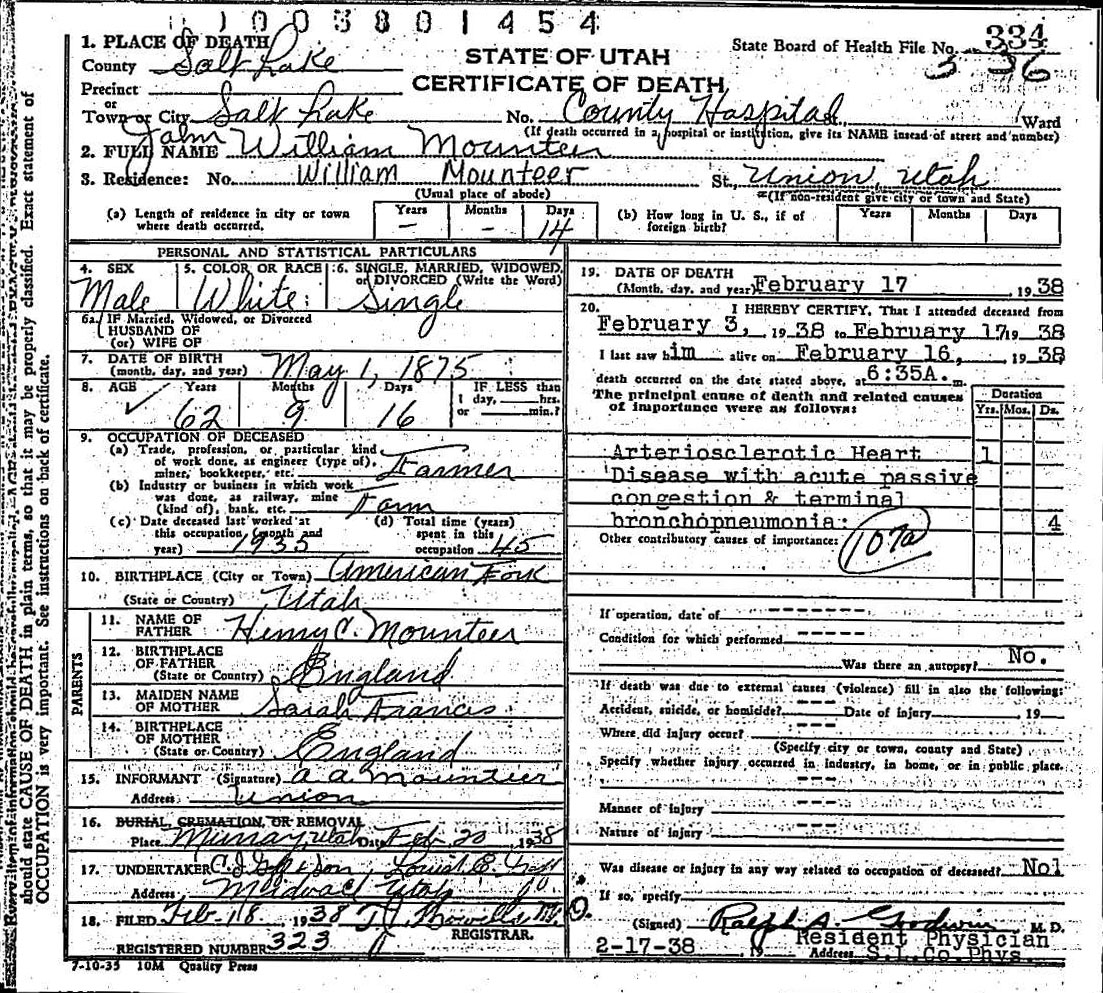 1003801454
1. PLACE OF DEATH
County Salt Lake
STATE OF UTAH
CERTIFICATE OF DEATH
State Board of Health File No. 334
3 36
Precinct
or
Town or City Salt Lake No. County Hospital St., Ward
(If death occurred in a hospital or institution, give its NAME instead of street and number)
John
2. FULL NAME William Mounteer
3. Residence: No. William Mounteer St., Union, Utah
(Usual place of abode) (If non-resident give city or town and State)
(a) Length of residence in city or town where death occurred. Years - Months - Days 14
(b) How long in U. S., if of foreign birth? Years Months Days
PERSONAL AND STATISTICAL PARTICULARS
4. SEX Male
5. COLOR OR RACE White
6. SINGLE, MARRIED, WIDOWED, or DIVORCED (Write the Word) Single
6a. IF Married, Widowed, or Divorced
HUSBAND OF
(or) WIFE OF
7. DATE OF BIRTH
(month, day, and year) May 1, 1875
8. AGE Years 62 Months 9 Days 16 IF LESS than 1 day, hrs. or min.?
9. OCCUPATION OF DECEASED
(a) Trade, profession, or particular kind
of work done, as engineer (type of),
miner, bookkeeper, etc. Farmer
(b) Industry or business in which work
was done, as railway, mine
(kind of), bank, etc. Farm
(c) Date deceased last worked at this occupation (month and year) 1935
(d) Total time (years) spent in this occupation 45
10. BIRTHPLACE (City or Town) American Fork
(State or Country) Utah
PARENTS
11. NAME OF FATHER Henry C. Mounteer
12. BIRTHPLACE OF FATHER
(State or Country) England
13. MAIDEN NAME OF MOTHER Sarah Francis
14. BIRTHPLACE OF MOTHER
(State or Country) England
15. INFORMANT (Signature) A A Mounteer
Address Union
16. BURIAL, CREMATION, OR REMOVAL
Place Murray, Utah Date Feb 20 1938
17. UNDERTAKER
Address Midvale Utah
18. FILED Feb 18, 1938
REGISTRAR.
REGISTERED NUMBER 323
7-10-35 10M Quality Press
19. DATE OF DEATH
(Month, day, and year) February 17 1938
20. I HEREBY CERTIFY, That I attended deceased from
February 3, 1938 to February 17, 1938
I last saw him alive on February 16, 1938
death occurred on the date stated above, at 6:35A. m.
The principal cause of death and related causes
of importance were as follows:
Duration
Yrs. Mos. Ds.
Arteriosclerotic Heart 1
Disease with acute passive
congestion & terminal
bronchopneumonia: 4
Other contributory causes of importance: 107a
If operation, date of ------
Condition for which performed ------
Was there an autopsy? No.
If death was due to external causes (violence) fill in also the following:
Accident, suicide, or homicide? --- Date of injury 19
Where did injury occur? ---
(Specify city or town, county and State)
Specify whether injury occurred in industry, in home, or in public place.
---
Manner of injury ---
Nature of injury ---
Was disease or injury in any way related to occupation of deceased? No1
If so, specify
(Signed) Ralph A. Godwin M. D.
Resident Physician
2-17-38 19 Address S.L.Co.Phys.
should state CAUSE OF DEATH in plain terms, so that it may be properly classified. Exact statement of
OCCUPATION is very important. See instructions on back of certificate.